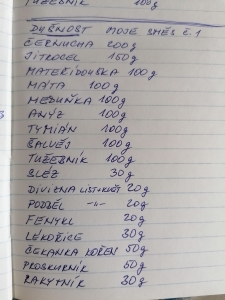 TUŽEBNÍK 100g
DUŠNOST MOJE SMĚS Č.1
ČERNUCHA 200g
JITROCEL 150g
MATEŘÍDOUŠKA 100g
MÁTA 100g
MEDUŇKA 100g
ANÝZ 100g
TYMIÁN 100g
ŠALVĚJ 100g
TUŽEBNÍK 100g
SLÉZ 30g
DIVIZNA LIST+KVĚT 20g
PODBĚL -"- 20g
FENYKL 20g
LÉKOŘICE 30g
ČEKANKA KOŘEN 50g
PROSKURNÍK 50g
RAKYTNÍK 30g